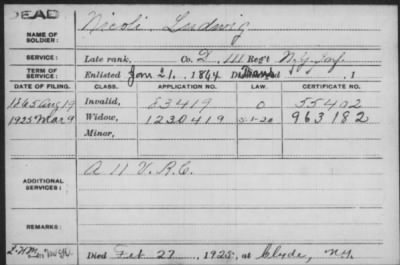 DEAD
NAME OF SOLDIER: Nicoli, Ludwig
SERVICE: Late rank, Co. D, 111 Reg't N.Y. Inf.
TERM OF SERVICE: Enlisted Jan 21, 1864 , 1
DATE OF FILING. CLASS. APPLICATION NO. LAW. CERTIFICATE NO.
1865 Aug 19 Invalid, 83419 0 55402
1925 Mar 9 Widow, 1230419 5-1-20 963182
Minor,
ADDITIONAL SERVICES: A 11 V.R.C.
REMARKS:
Died Feb 27, 1925, at Clyde, N.Y.